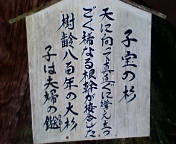 子宝の杉
天に向って真直ぐに増え立つ
ごく稀なる根幹が接合した
樹齢八百年の大杉
子は夫婦の鎹